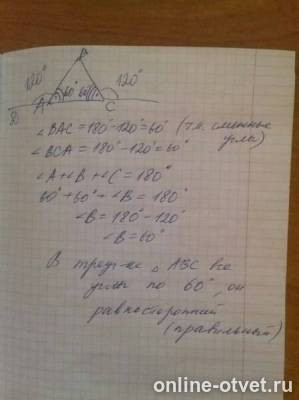 B
120°
60°
60°
120°
A
C
D
∠BAC = 180° - 120° = 60° (т.к. смежные
углы)
∠BCA = 180° - 120° = 60°
∠A + ∠B + ∠C = 180°
60° + 60° + ∠B = 180°
∠B = 180° - 120°
∠B = 60°
В треуг-ке △ABC все
углы по 60°, он
равносторонний
(правильный)
online-otvet.ru